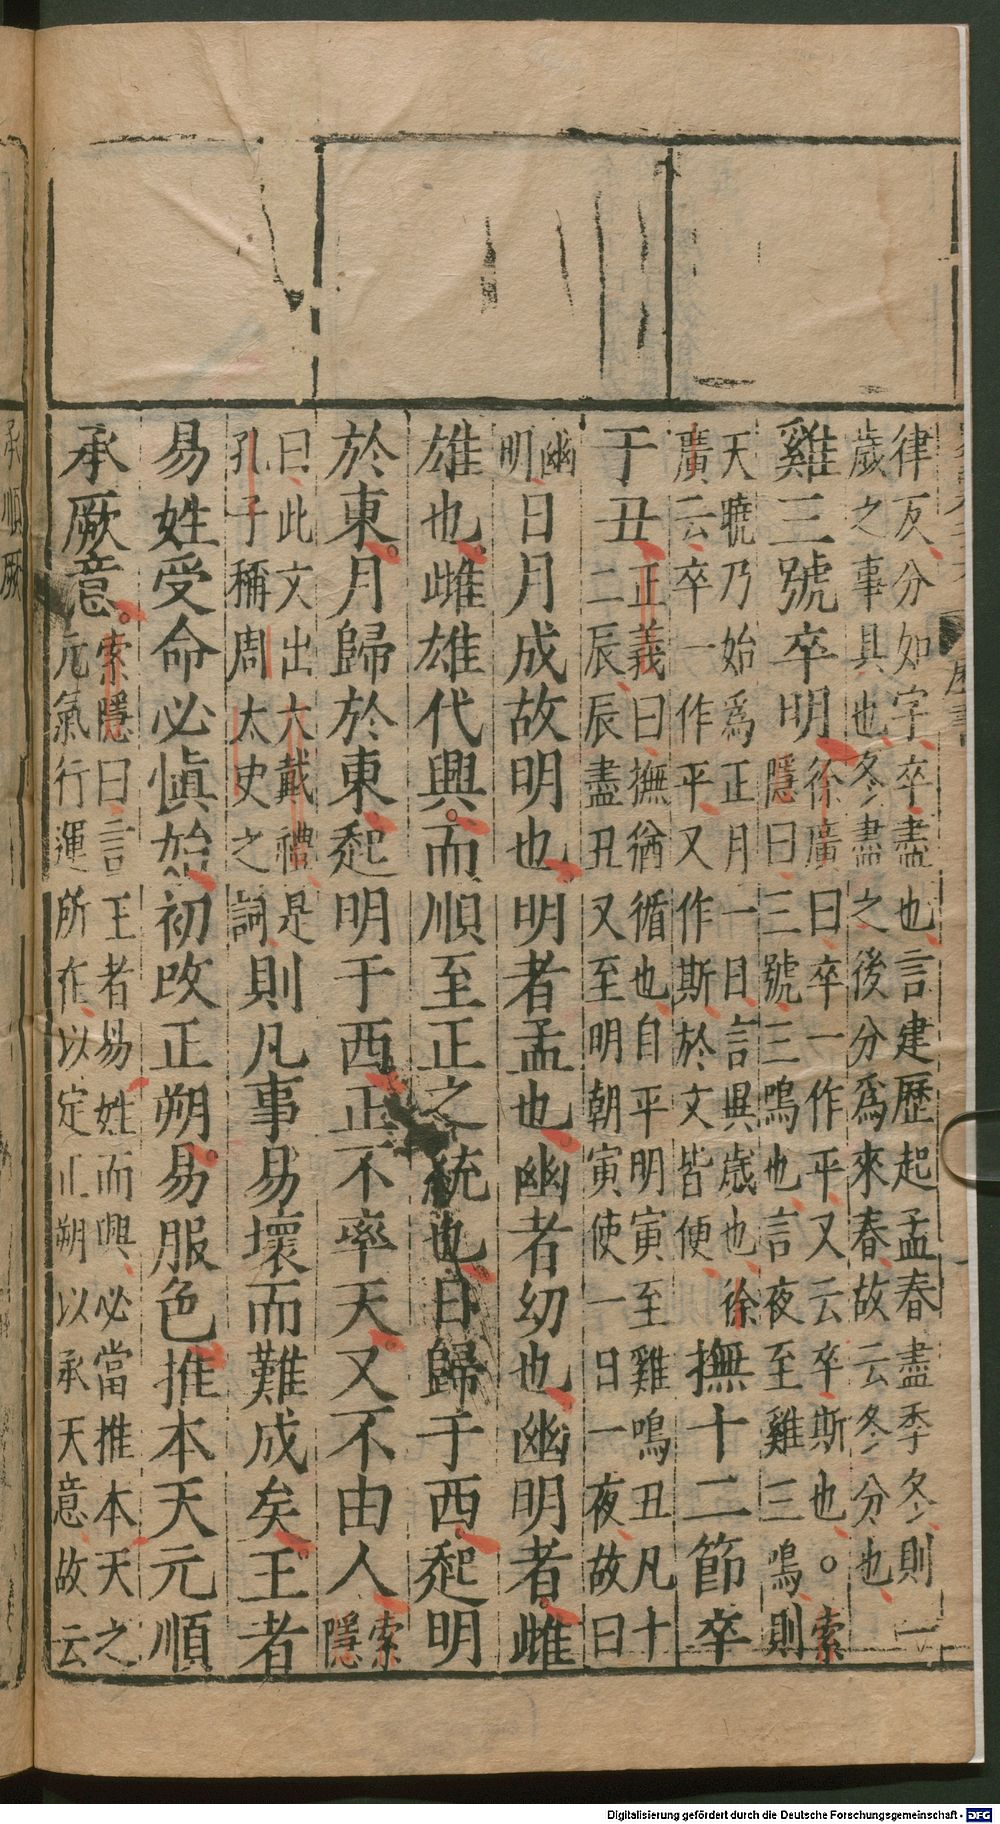 律反分如字卒盡也言建歷起孟春盡季冬則一
歲之事具也冬盡之後分爲來春故云冬分也
雞三號卒明
徐廣曰卒一作平又云卒斯也。索
隱曰三號三鳴也言夜至雞三鳴則
天曉乃始爲正月一日言異歲也徐
廣云卒一作平又作斯於文皆便
撫十二節卒
于丑
正義曰撫猶循也自平明寅至雞鳴丑凡十
二辰辰盡丑又至明朝寅使一日一夜故曰
幽
明
日月成故明也明者孟也幽者幼也幽明者雌
雄也雌雄代興而順至正之統也日歸于西起明
於東月歸於東起明于西正不率天又不由人
索
隱
曰此文出大戴禮是
孔子稱周太史之詞
則凡事易壞而難成矣王者
易姓受命必慎始初改正朔易服色推本天元順
承厥意
索隱曰言王者易姓而興必當推本天之
元氣行運所在以定正朔以承天意故云
承順厥
Digitalisierung gefördert durch die Deutsche Forschungsgemeinschaft - DFG